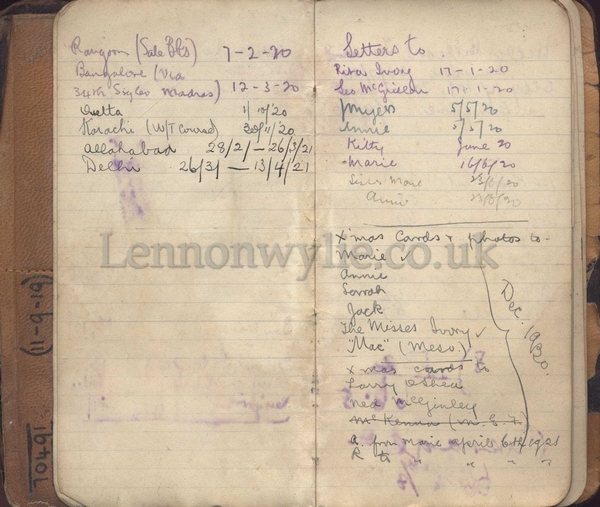 Rangoon (Sale Bks) 7-2-20
Bangalore (Via
34th Sigles Madras) 12-3-20
Quetta 1/10/20
Karachi (W/T Course) 30/11/20
Allahabad 28/2/ — 26/3/21
Delhi 26/3/ — 13/4/21
(11-9-19)
70491
Letters to
Rivas Ivory 17-1-20
Geo McGrielln 17-1-20
Myers 5/5/20
Annie 5/5/20
Kitty June 20
Marie 16/6/20
Sister Marie 23/6/20
Annie 23/6/20
X'mas Cards & photos to-
Marie ✓
Annie
Sarah
Jack
The Misses Ivory ✓
"Mac" (Meso.)
X'mas cards to
Larry O'Shea
Ned McGinley
McKenna
Dec. 1920.
A. from Marie april 6th
R to " " "
Lennonwylie.co.uk